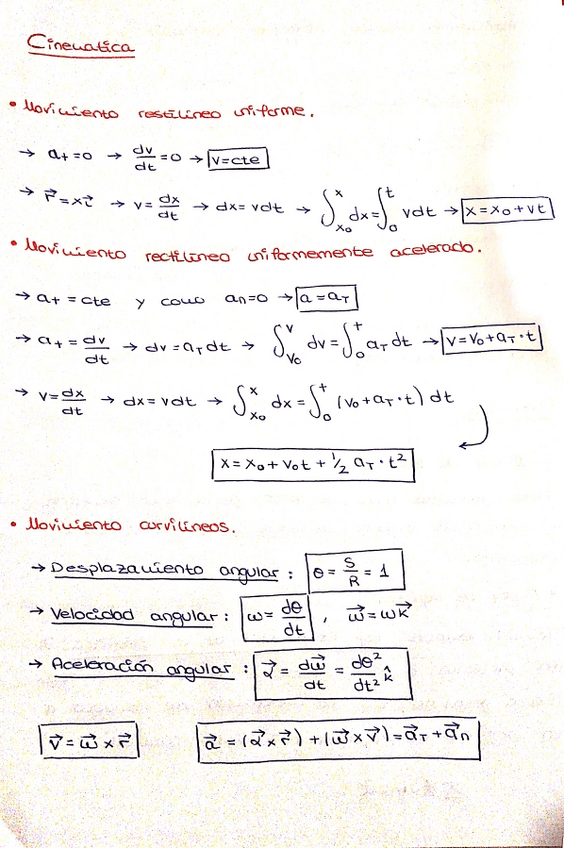 Cinematica
• Movimiento restilineo uniforme.
→ at=0 → dv/dt=0 → v=cte
→ r⃗=xi⃗ → v=dx/dt → dx=vdt → ∫_{x₀}^{x} dx=∫_{0}^{t} vdt → x=x₀+vt
• Movimiento rectilineo uniformemente acelerado.
→ at=cte y como an=0 → a=aT
→ at=dv/dt → dv=aTdt → ∫_{v₀}^{v} dv=∫_{0}^{t} aTdt → v=v₀+aT·t
→ v=dx/dt → dx=vdt → ∫_{x₀}^{x} dx=∫_{0}^{t} (v₀+aT·t)dt
x=x₀+v₀t+1/2 aT·t²
• Movimiento curvilineos.
→ Desplazamiento angular: θ=S/R=1
→ Velocidad angular: ω=dθ/dt, ω⃗=ωk⃗
→ Aceleración angular: α⃗=dω⃗/dt=dθ²/dt² k̂
v⃗=ω⃗×r⃗ a⃗=(α⃗×r⃗)+(ω⃗×v⃗)=a⃗T+a⃗n